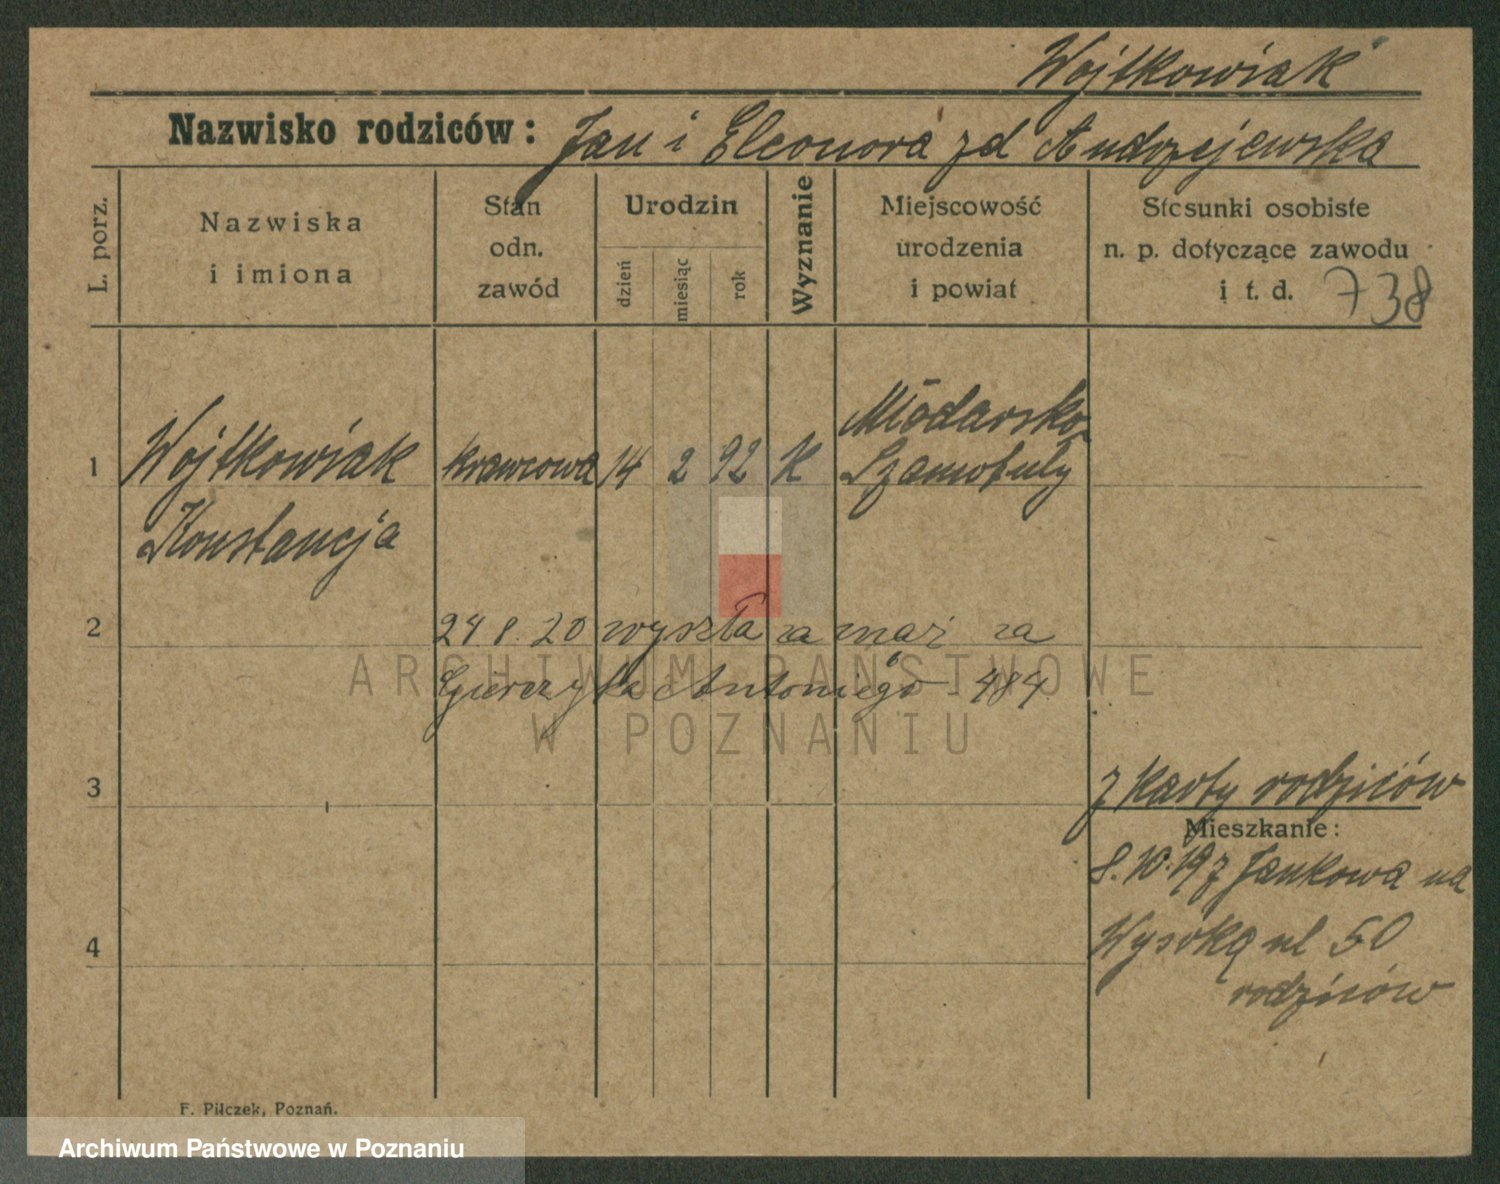 Wojtkowiak
Nazwisko rodziców: Jan i Eleonora zd Andrzejewska
L. porz.
Nazwiska
i imiona
Stan
odn.
zawód
Urodzin
dzień
miesiąc
rok
Wyznanie
Miejscowość
urodzenia
i powiat
Stosunki osobiste
n. p. dotyczące zawodu
i t. d. 738
Módarsko
1 Wojtkowiak krawcowa 14 2 92 K Szamotuły
Konstancja
2 24 8. 20 wyszła za mąż za
Antoniego 484
ARCHIWUM PAŃSTWOWE
W POZNANIU
3 z karty rodziców
Mieszkanie:
8.10.19 z Jankowa na
4 Wysoką ul 50
rodziców
F. Pilczek, Poznań.
Archiwum Państwowe w Poznaniu